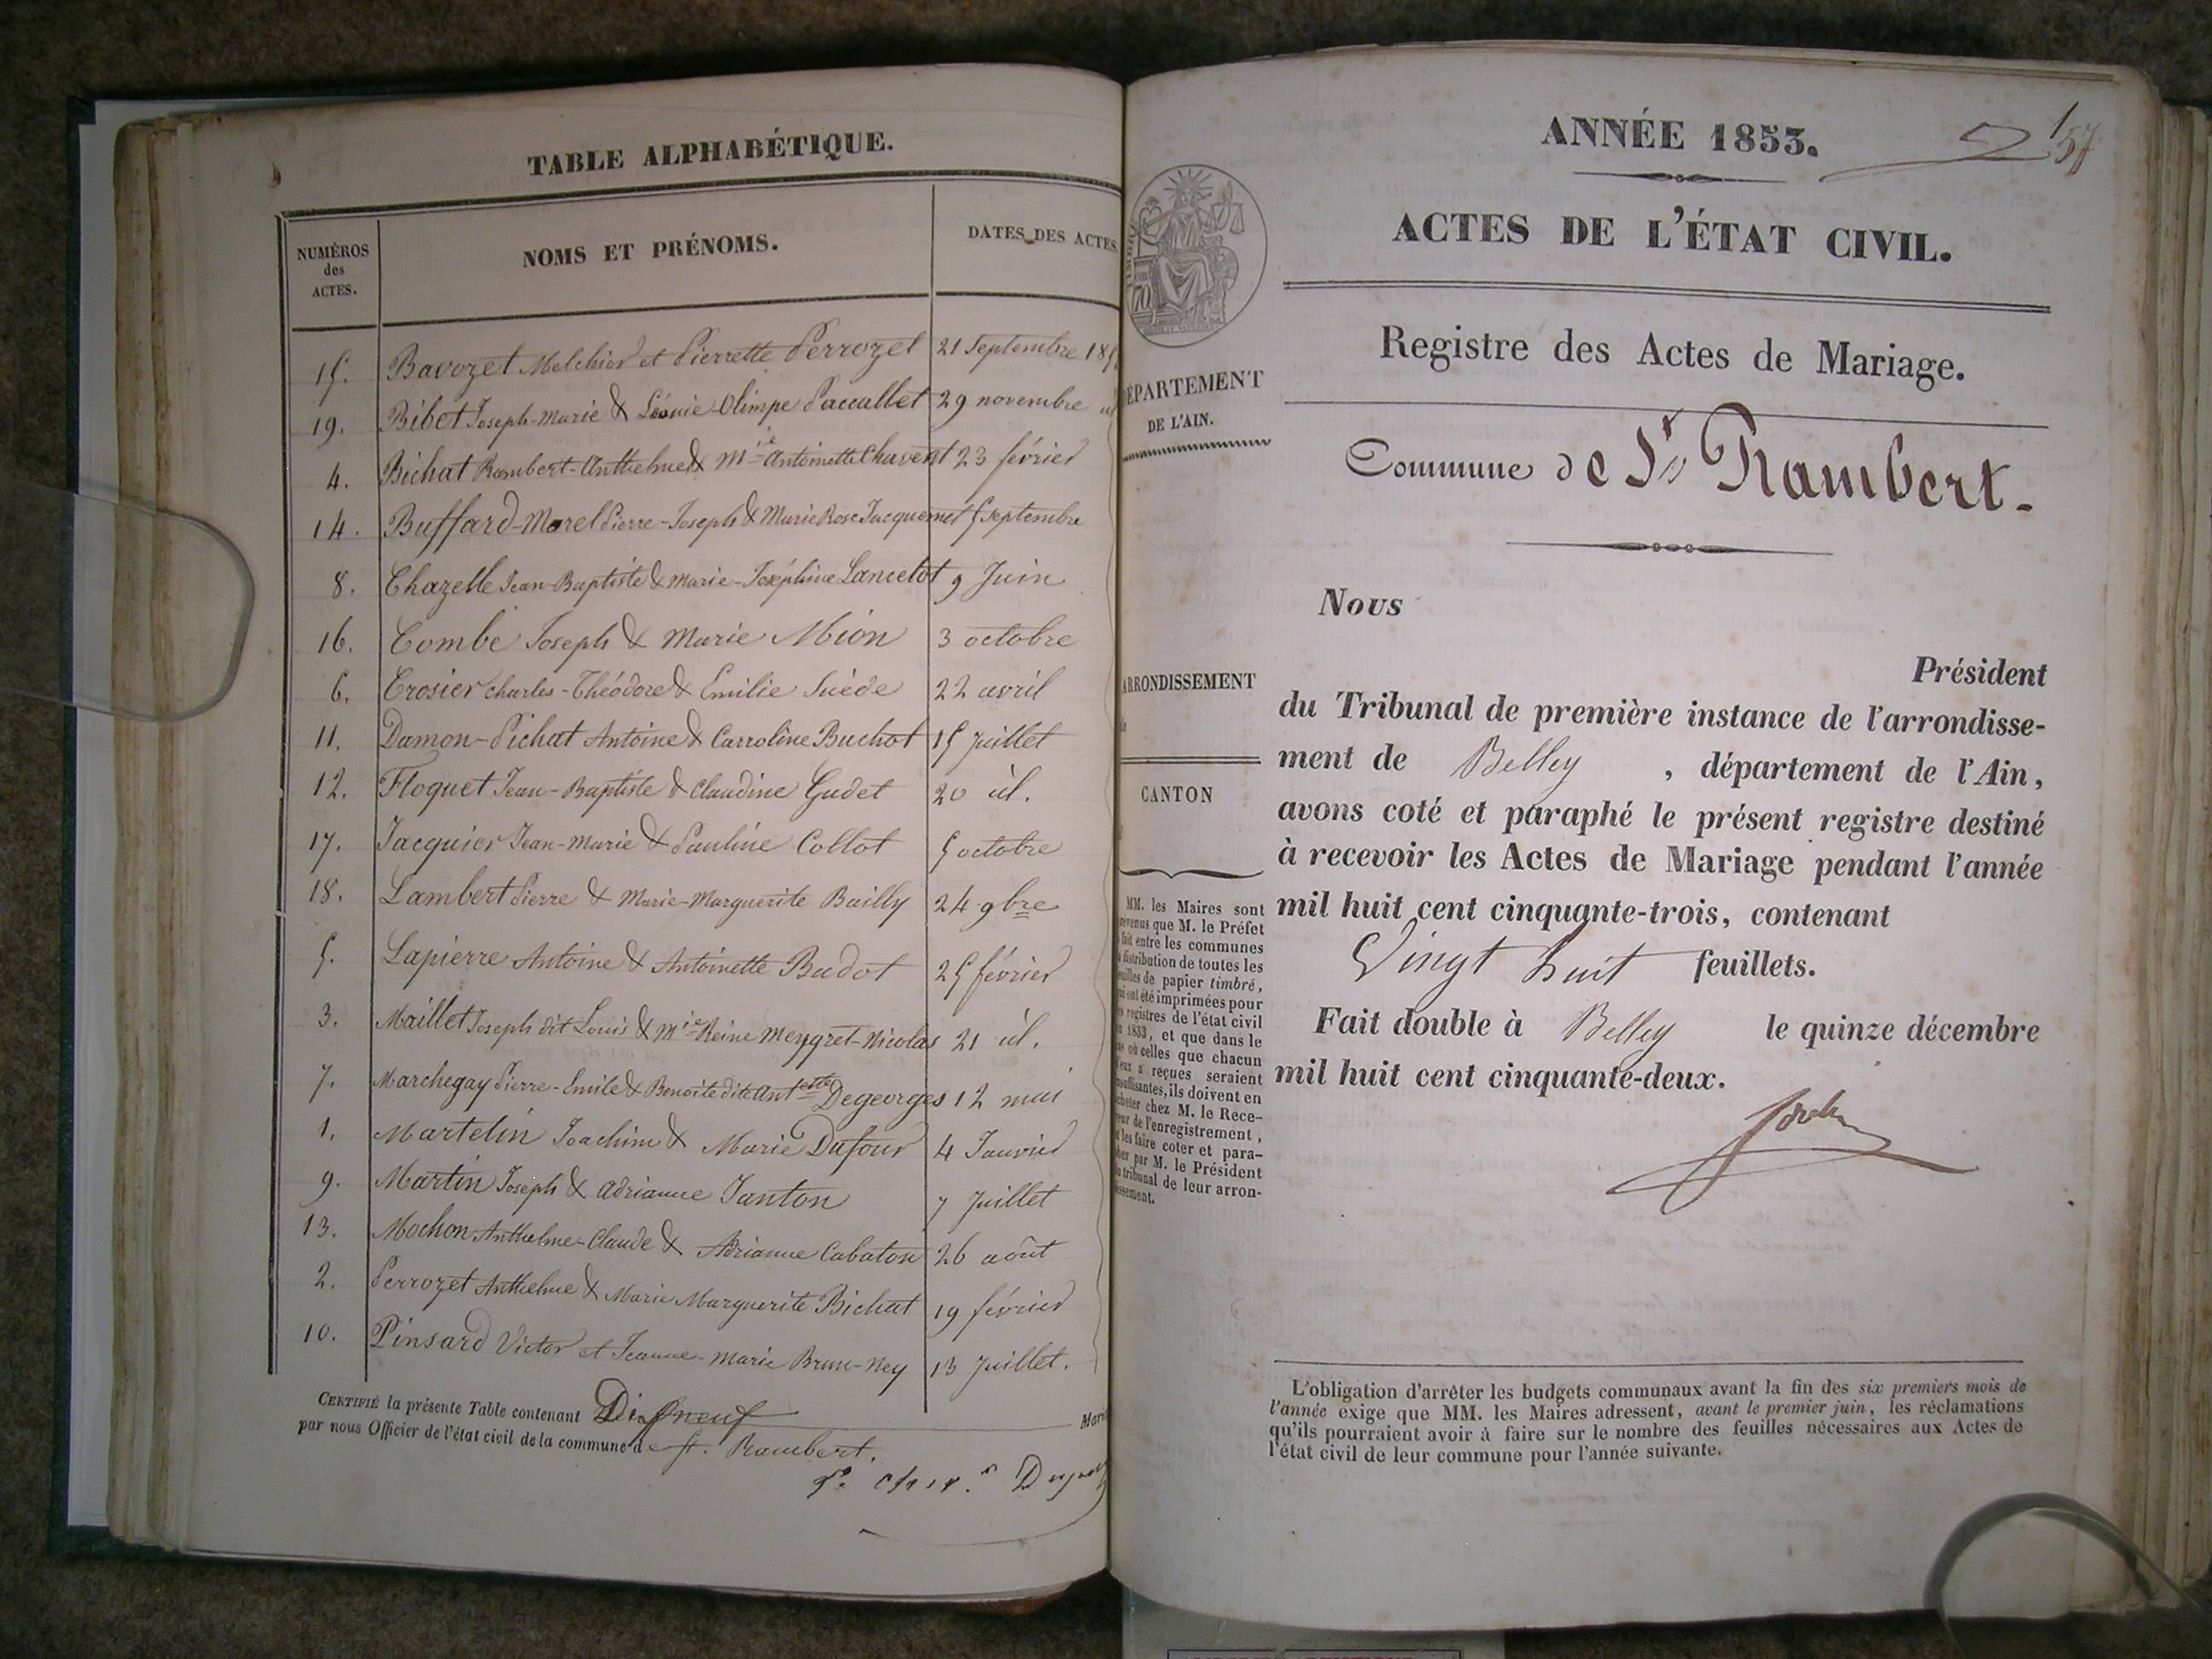 TABLE ALPHABÉTIQUE.
NUMÉROS des ACTES.
NOMS ET PRÉNOMS.
DATES DES ACTES.
15. Bavozet Melchior et Pierrette Perrozet 21 Septembre 185
19. Bibet Joseph-Marie & Léonie-Olimpe Paccallet 29 novembre id
4. Bichat Rambert-Anthelme & Mie Antoinette Chavent 23 février
14. Buffard-Morel Pierre-Joseph & Marie Rose Jacquemet 5 septembre
8. Chazelle Jean-Baptiste & Marie-Joséphine Lancelot 9 Juin
16. Combe Joseph & Marie Mion 3 octobre
6. Crosier Charles-Théodore & Emilie Suède 22 avril
11. Damon-Pichat Antoine & Carroline Buchot 15 Juillet
12. Floquet Jean-Baptiste & Claudine Gudet 20 id.
17. Jacquier Jean-Marie & Pauline Collot 5 octobre
18. Lambert Pierre & Marie-Marguerite Bailly 24 9bre
5. Lapierre Antoine & Antoinette Badot 25 février
3. Maillet Joseph dit Louis & Mie Reine Meygret-Nicolas 21 id.
7. Marchegay Pierre-Emile & Benoite dite Antette Degeorges 12 mai
1. Martelin Joachim & Marie Dufour 4 Janvier
9. Martin Joseph & Adrianne Janton 7 Juillet
13. Mochon Anthelme-Claude & Adrianne Cabaton 26 août
2. Perrozet Anthelme & Marie Marguerite Bichat 19 février
10. Pinsard Victor et Jeanne-Marie Brun-Ney 13 Juillet.
CERTIFIÉ la présente Table contenant Dix neuf Mari
par nous Officier de l'état civil de la commune de St. Rambert.
ANNÉE 1853.
ACTES DE L'ÉTAT CIVIL.
Registre des Actes de Mariage.
DÉPARTEMENT
DE L'AIN.
Commune de St Rambert.
Nous
Président
ARRONDISSEMENT
du Tribunal de première instance de l'arrondisse-
ment de Belley, département de l'Ain,
CANTON
avons coté et paraphé le présent registre destiné
à recevoir les Actes de Mariage pendant l'année
mil huit cent cinquante-trois, contenant
Vingt huit feuillets.
Fait double à Belley le quinze décembre
mil huit cent cinquante-deux.
MM. les Maires sont
que M. le Préfet
fait entre les communes
distribution de toutes les
de papier timbré,
ont été imprimées pour
registres de l'état civil
1853, et que dans le
où celles que chacun
reçues seraient
ils doivent en
chez M. le Rece-
de l'enregistrement,
les faire coter et para-
par M. le Président
tribunal de leur arron-
L'obligation d'arrêter les budgets communaux avant la fin des six premiers mois de
l'année exige que MM. les Maires adressent, avant le premier juin, les réclamations
qu'ils pourraient avoir à faire sur le nombre des feuilles nécessaires aux Actes de
l'état civil de leur commune pour l'année suivante.